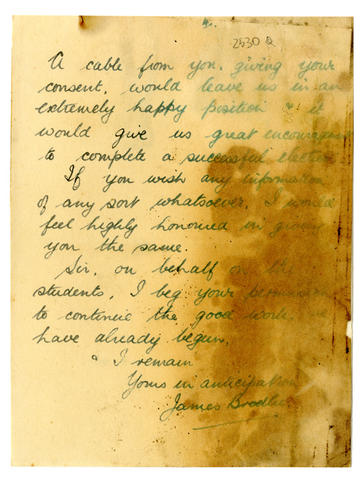 4.
2530 Q
A cable from you, giving your
consent, would leave us in an
extremely happy position & it
would give us great encouragem
to complete a successful election
If you wish any information
of any sort whatsoever, I would
feel highly honoured in giving
you the same.
Sir, on behalf of the
students, I beg your permission
to continue the good work, we
have already begun.
I remain
Yours in anticipation
James